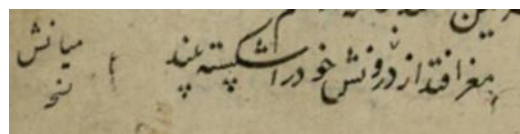 مغز افتد از درونش خود را شکسته چند
میانش
نخ